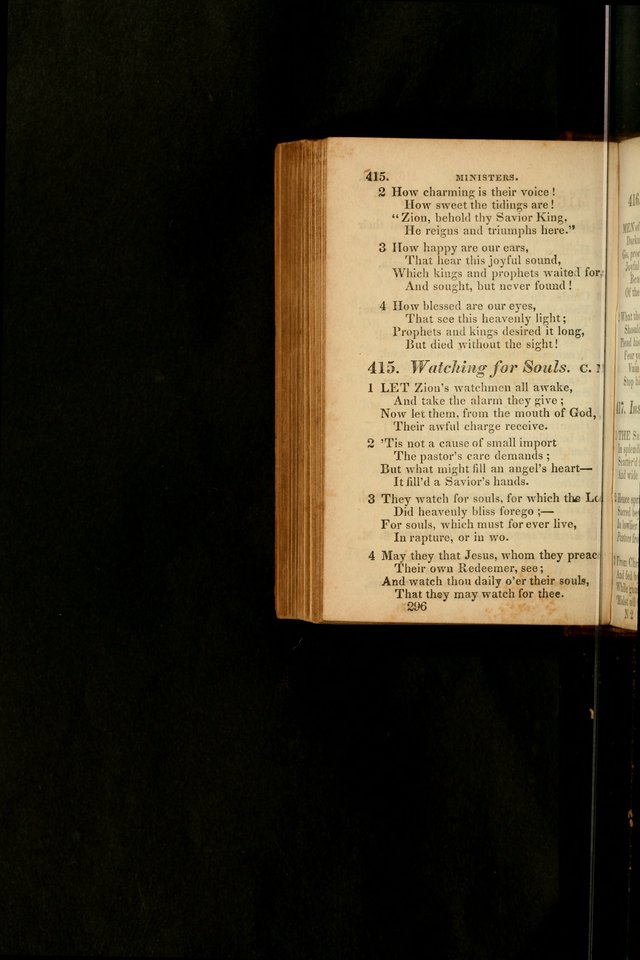 415. MINISTERS.
2 How charming is their voice!
How sweet the tidings are!
"Zion, behold thy Savior King,
He reigns and triumphs here."
3 How happy are our ears,
That hear this joyful sound,
Which kings and prophets waited for,
And sought, but never found!
4 How blessed are our eyes,
That see this heavenly light;
Prophets and kings desired it long,
But died without the sight!
415. Watching for Souls. C.
1 LET Zion's watchmen all awake,
And take the alarm they give;
Now let them, from the mouth of God,
Their awful charge receive.
2 'Tis not a cause of small import
The pastor's care demands;
But what might fill an angel's heart—
It fill'd a Savior's hands.
3 They watch for souls, for which the
Did heavenly bliss forego;—
For souls, which must for ever live,
In rapture, or in wo.
4 May they that Jesus, whom they
Their own Redeemer, see;
And watch thou daily o'er their souls,
That they may watch for thee.
296
416.
MEN of
Go,
Of the
What
Stop
417.
THE
In
And wide
Hence
Sacred
In
From
And fed
While
N 2